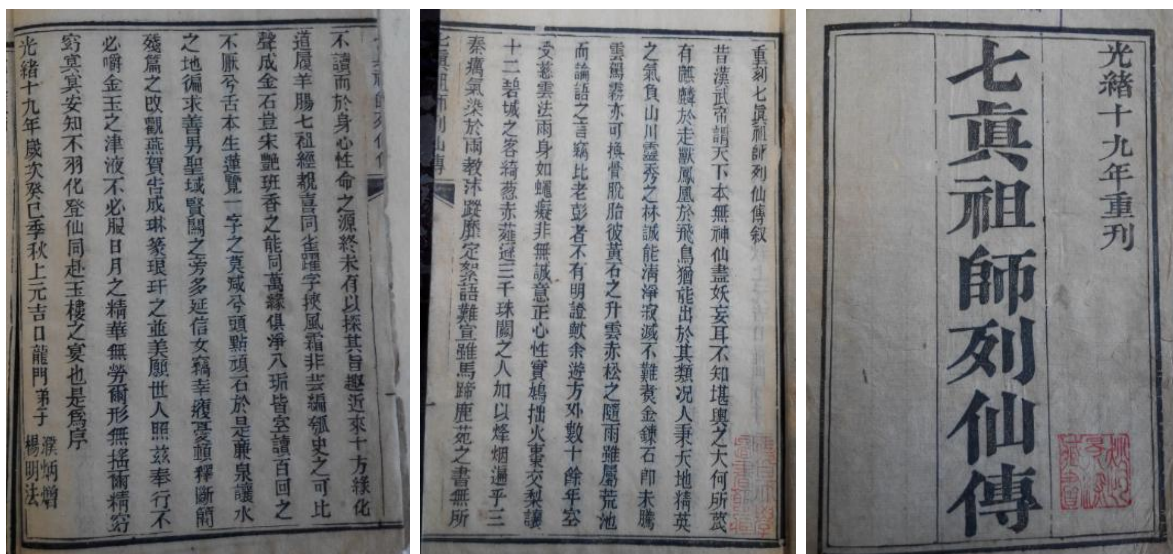 光緒十九年重刊
七眞祖師列仙傳
重刻七眞祖師列仙傳叙
昔漢武帝謂天下本無神仙盡妖妄耳不知堪輿之大何所蔑
有麒麟於走獸鳳凰於飛鳥猶能出於其類况人秉天地精英
之氣負山川靈秀之林誠能淸淨寂滅不難煮金鍊石即未騰
雲駕霧亦可換骨脫胎彼黃石之升雲赤松之隨雨雖屬荒池
而論語之言竊比老彭者不有明證歟余游方外數十餘年空
受慈雲法雨身如蠅癡非無誠意正心性實鳩拙火棗交梨讓
十二碧城之客綺葱赤薤遜三千珠闕之人加以烽烟遍乎三
秦癘氣染於兩敎沫蹤靡定絮語難宣雖馬蹄鹿苑之書無所
七眞祖師列仙傳
不讀而於身心性命之源終未有以探其旨趣近來十方緣化
道履羊腸七祖經親喜同雀躍字挾風霜非芸編瓠史之可比
聲成金石豈宋艷班香之能同萬緣俱淨八垢皆空讀百回之
不厭兮舌本生蓮覽一字之莫減兮頭點頑石於是亷泉讓水
之地徧求善男聖域賢關之旁多延信女竊幸憂頓釋斷簡
殘篇之改觀燕賀告成琳篆琅玕之並美願世人照兹奉行不
必嚼金玉之津液不必服日月之精華無勞爾形無搖爾精窈
窈冥冥安知不羽化登仙同赴玉樓之宴也是爲序
光緒十九年歲次癸巳季秋上元吉日龍門弟子
濮炳熷
楊明法